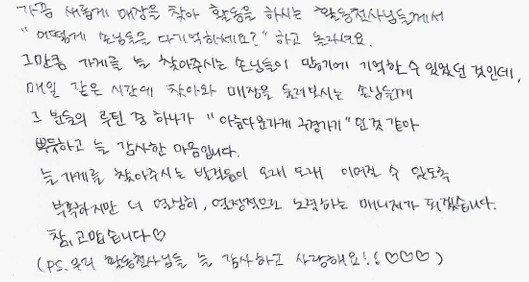 가끔 새롭게 매장을 찾아 활동을 하시는 활동천사님들께서
"어떻게 손님들을 다 기억하세요?" 하고 놀라셔요.
그만큼 가게를 늘 찾아주시는 손님들이 많기에 기억할 수 있었던 것인데,
매일 같은 시간에 찾아와 매장을 둘러보시는 손님들께
그 분들의 루틴 중 하나가 "아름다운가게 구경가기" 인 것 같아
뿌듯하고 늘 감사한 마음입니다.
늘 가게를 찾아주시는 발걸음이 오래 오래 이어질 수 있도록
부족하지만 더 열심히, 열정적으로 노력하는 매니저가 되겠습니다.
참, 고맙습니다♡
(PS. 우리 활동천사님들 늘 감사하고 사랑해요!! ♡♡♡)